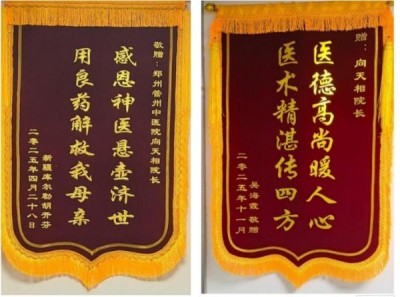 敬赠：郑州管州中医院向天相院长
感恩神医悬壶济世
用良药解救我母亲
新疆库尔勒胡开芬
二零二五年四月二十八日
赠：向天相院长
医德高尚暖人心
医术精湛传四方
吴海霞敬赠
二零二五年十一月